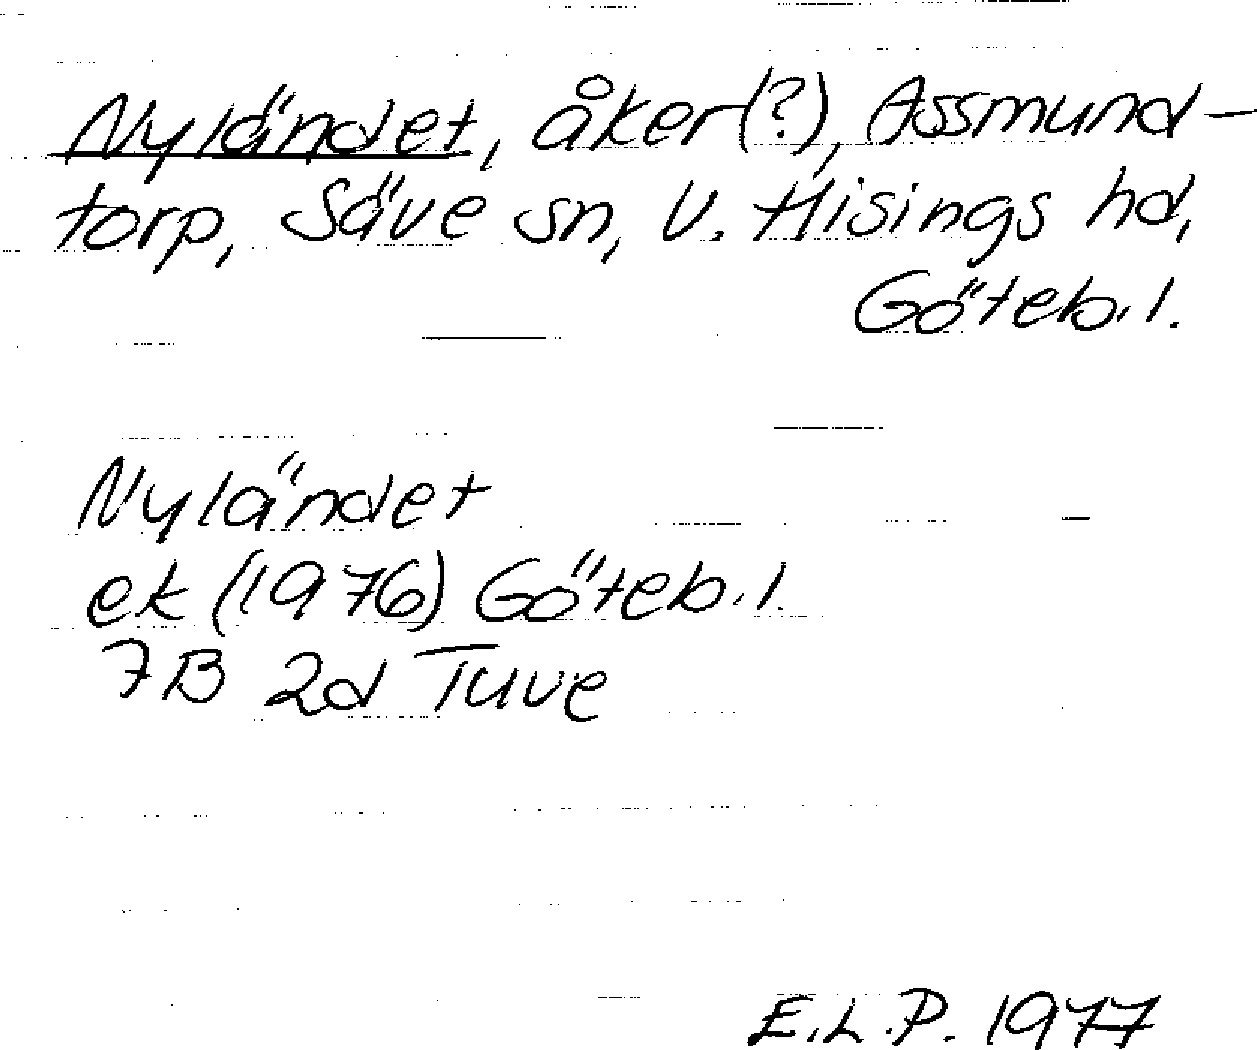 Nyländet, åker(?), Assmund-
torp, Säve sn, V. Hisings hd,
Göteb.l.
Nyländet
ek (1976) Göteb.l.
7B 2d Tuve
E.L.P. 1977